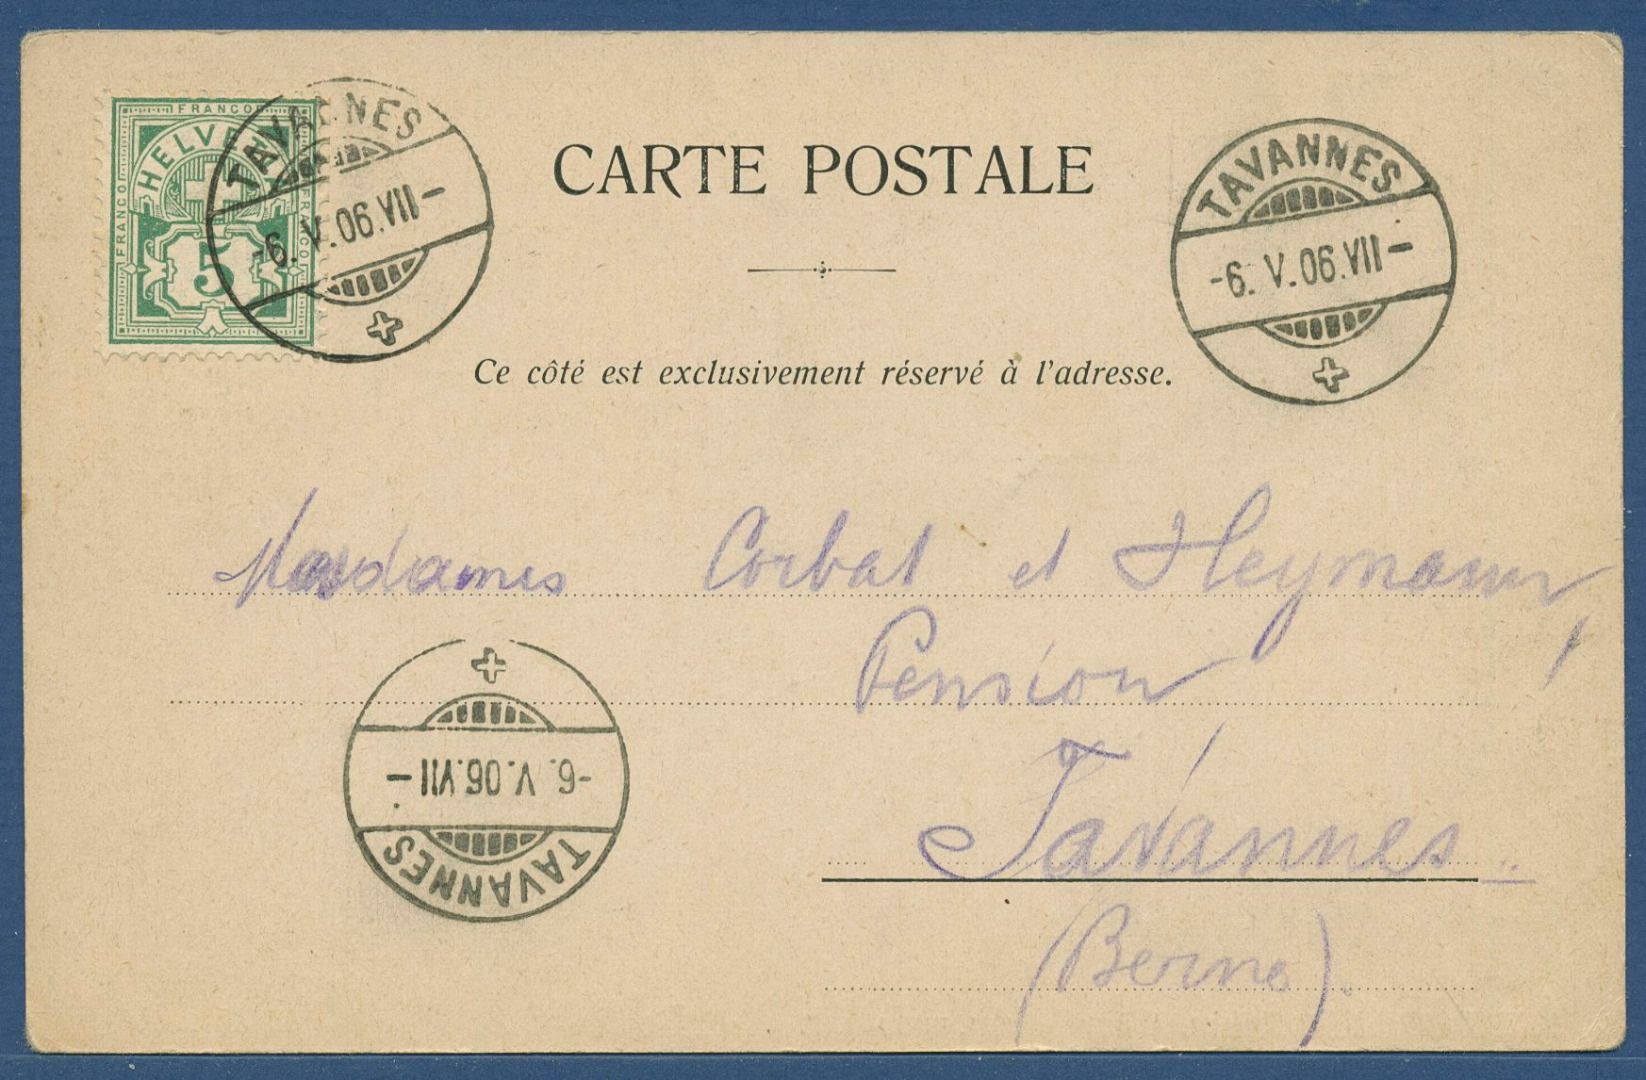 FRANCO
FRANCO
FRANCO
HELVE
5
TAVANNES
-6. V. 06. VII -
CARTE POSTALE
TAVANNES
-6. V. 06. VII -
Ce côté est exclusivement réservé à l'adresse.
Mesdames Corbat et Heymann,
Pension
TAVANNES
-6. V. 06. VII -
Tavannes
(Berne).